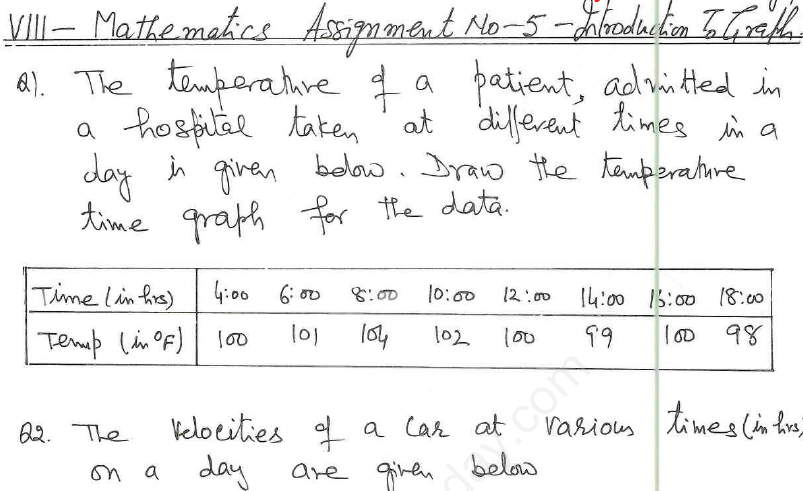 VIII - Mathematics Assignment No-5 - Introduction To Graph.
Q1. The temperature of a patient, admitted in
a hospital taken at different times in a
day is given below. Draw the temperature
time graph for the data.
Time (in hrs) 4:00 6:00 8:00 10:00 12:00 14:00 16:00 18:00
Temp (in °F) 100 101 104 102 100 99 100 98
Q2. The velocities of a car at various times (in hrs)
on a day are given below
day.com